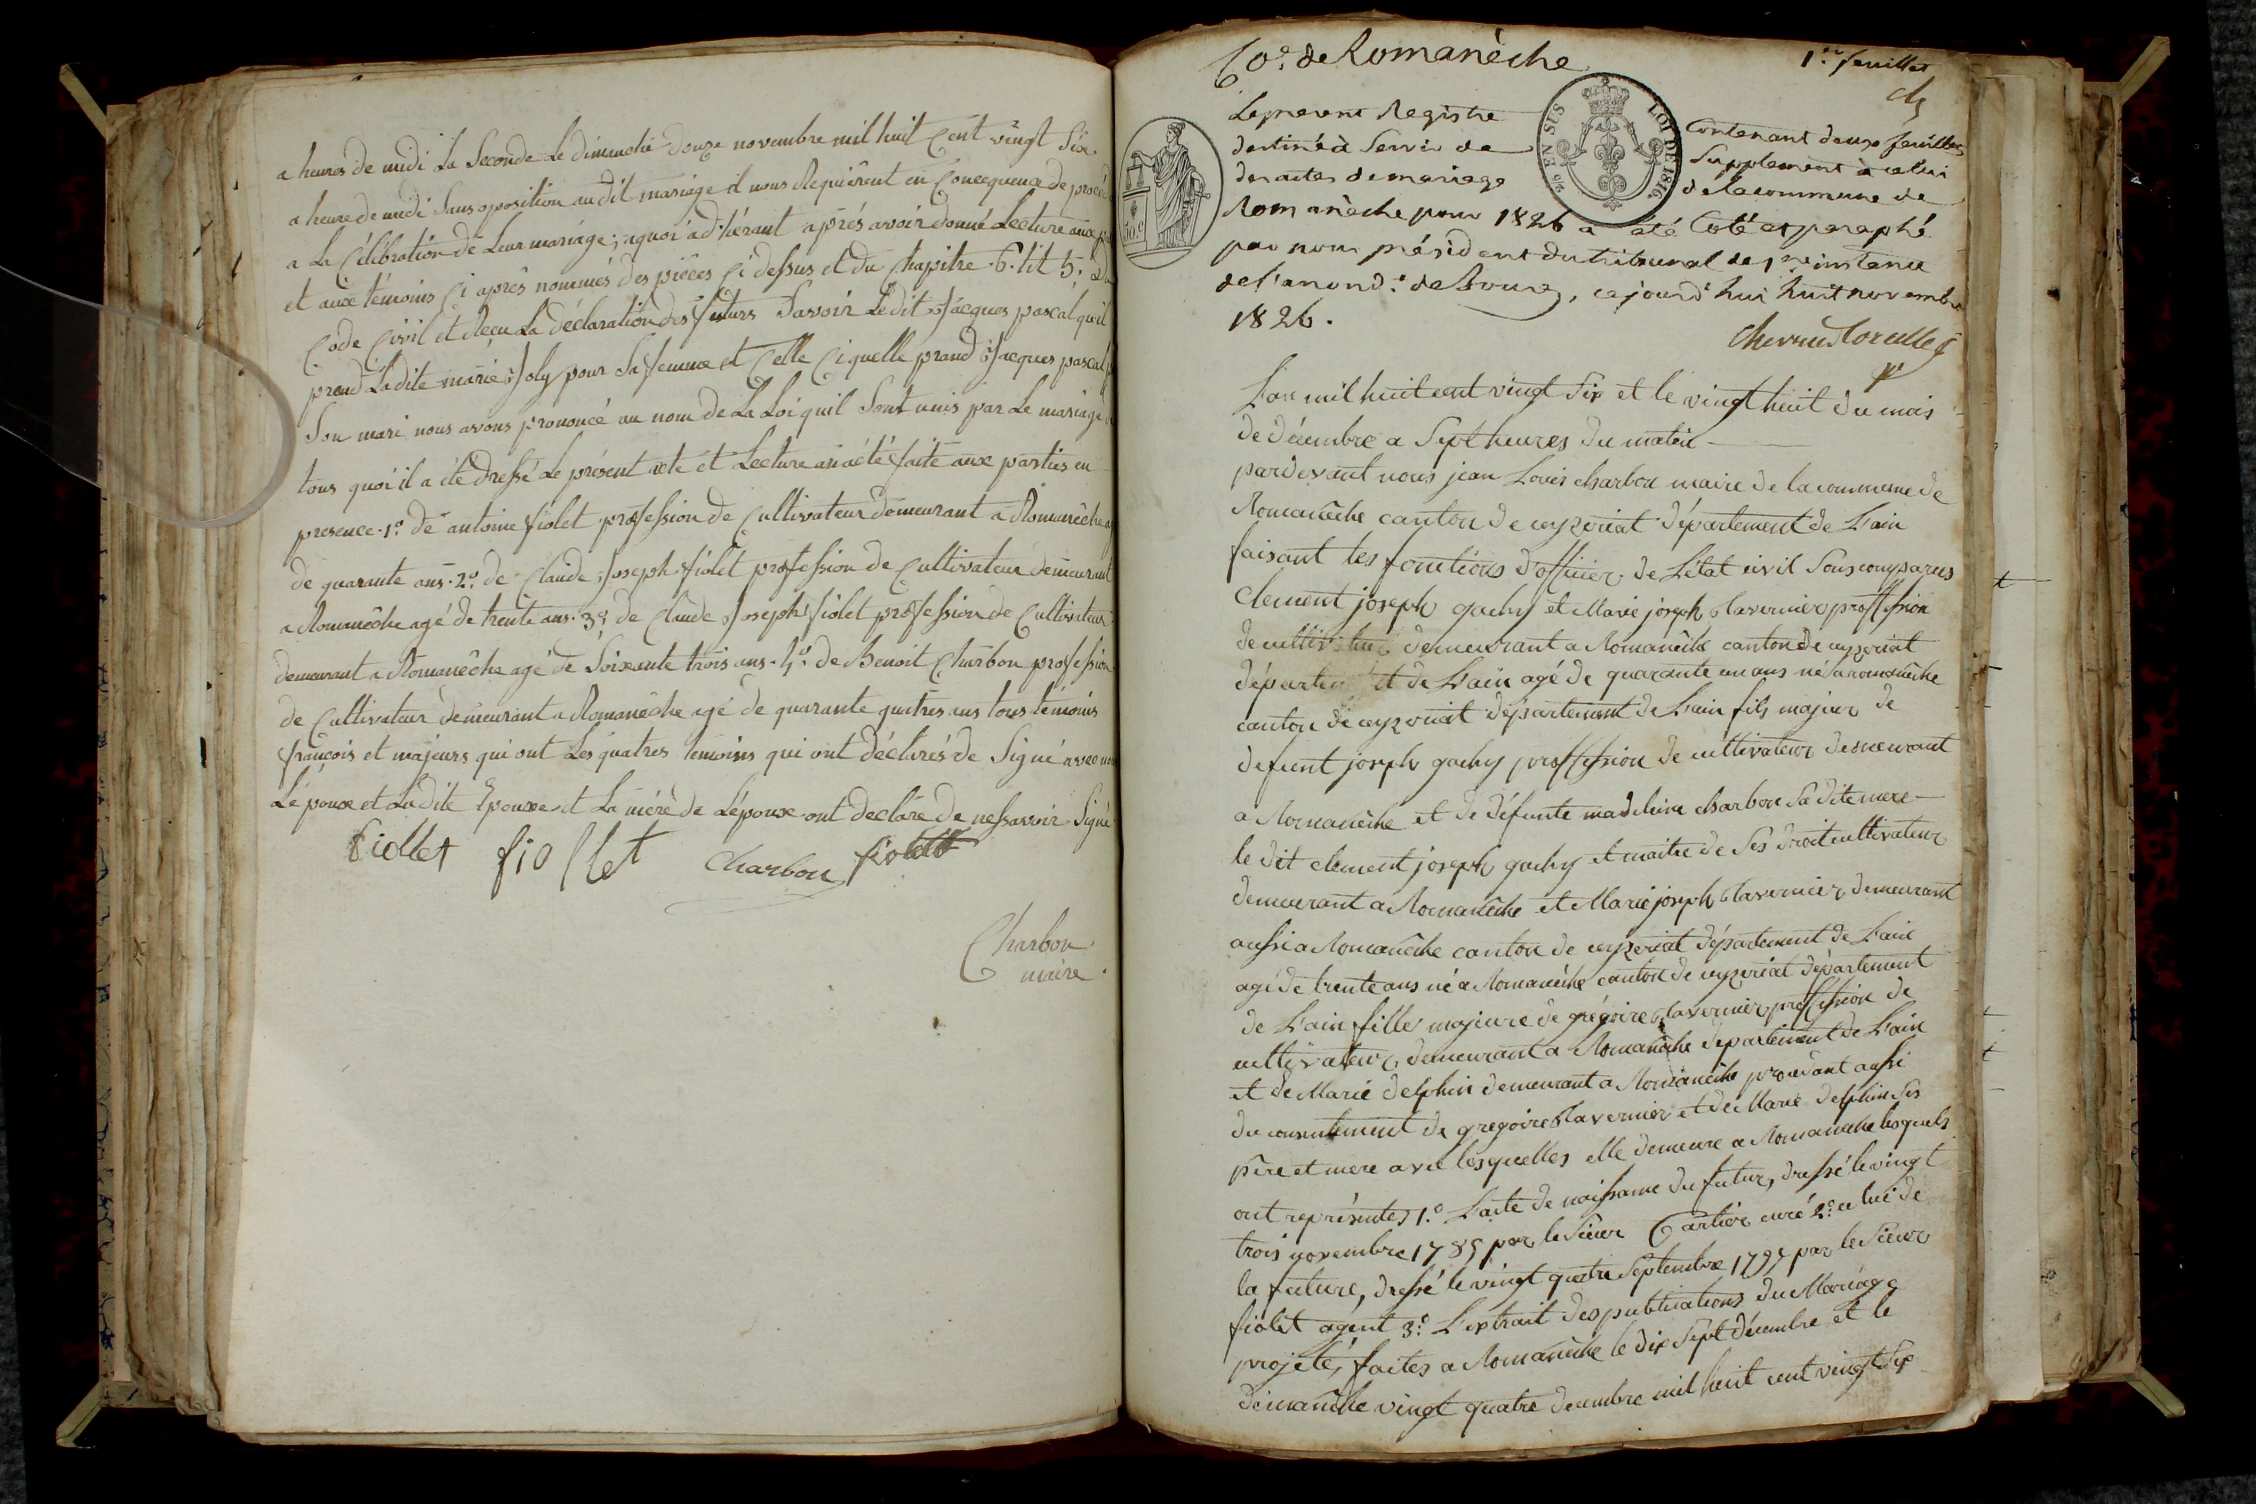 a heures de midi La Seconde Le dimanche douze novembre mil huit Cent vingt Six
a heure de midi Sans oposition au dit mariage il nous Requièrent en Concequence de
a La Célébration de Leur mariage; aquoi adhérant après avoir donné Lecture aux
et aux témoins Ci après nommés des pièces Ci dessus et du Chapitre 6. tit 5.
Code Civil et Reçu La déclaration des futurs Savoir Le dit Jacques pascal quil
prend Ladite marie Joly pour Sa femme et Celle Ci quelle prand Jacques pascal
Son mari nous avons prononcé au nom de La Loi quil Sont unis par Le mariage
tous quoi il a été dressé Le présent acte et Lecture an a été faite aux parties en
presence 1.º de antoine fiolet profession de Cultivateur demeurant a Romanêche
de quarante ans. 2º de Claude Joseph fiolet profession de Cultivateur demeurant
a Romanêche agé de trente ans. 3º de Claude Joseph fiolet profession de Cultivateur
demeurant a Romanêche agé de Soixante trois ans. 4º de Benoit Charbon profession
de Cultivateur demeurant a Romanêche agé de quarante quatres ans tous témoins
françois et majeurs qui ont Les quatres temoins qui ont déclarés de Signé avec
Lépoux et Ladite Epouxe et La mére de Lépoux ont declaré de nessavoir Signé
fiollet fiollet Charbon fiolet
Charbon
maire
Co.e de Romanèche
1.er feuillet
Le présent Registre
destiné à Servir de
des actes de mariage
EN SUS
LOI DE 1816
Contenant deux feuilles
Supplement à celui
de la commune de
Romanèche pour 1826 a été Coté et paraphé
par nous président du tribunal de 1re instance
de l'arrond.t de Bourg, cejourd'hui huit novembre
1826.
L'an mil huit cent vingt Six et le vingt huit du mois
de décembre a Sept heures du matin
pardevant nous jean Louis charbon maire de la commune de
Romanêche canton de ceyzeriat département de L'ain
faisant les fonctions d'officier de L'état civil Sont comparus
Clement joseph gachy et Marie joseph tavernier proffession
de cultivateur demeurant a Romanêche canton de ceyzeriat
département de L'ain agé de quarante un ans né a romanêche
canton de ceyzeriat département de L'ain fils majeur de
defunt joseph gachy proffession de cultivateur demeurant
a Romanêche et de défunte madeleine charbon Sa dite mere
le dit clement joseph gachy et maitre de Ses droit cultivateur
demeurant a Romanêche et Marie joseph tavernier demeurant
aussi a Romanêche canton de ceyzeriat département de L'ain
agé de trente ans né a Romanêche canton de ceyzeriat département
de L'ain fille majeure de grégoire tavernier proffession de
cultivateur demeurant a Romanêche departement de L'ain
et de Marie delphin demeurant a Romanêche procédant aussi
du consentement de gregoire tavernier et de Marie delphin Ses
père et mere avec lesquelles elle demeure a Romanêche lesquels
ont représentes 1.º L'acte de naissance du futur, dressé le vingt
trois novembre 1785 par le Sieur Cartier curé 2.º celui de
la future, dressé le vingt quatre Septembre 1797 par le Sieur
fiolet agent 3.º L'extrait des publications du Mariage
projeté, faites a Romanêche le dix Sept décembre et le
dimanche vingt quatre decembre mil huit cent vingt Six